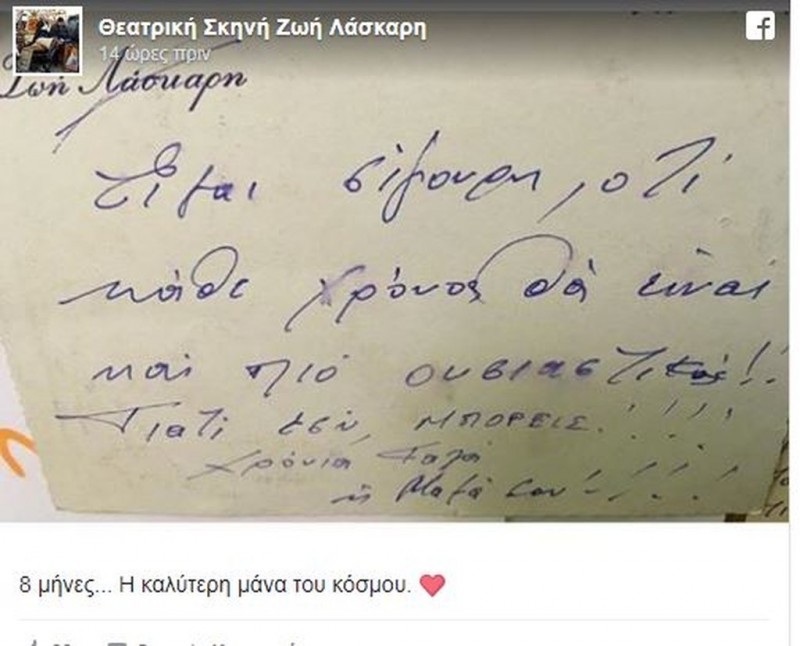 Θεατρική Σκηνή Ζωή Λάσκαρη
14 ώρες πριν
Ζωή Λάσκαρη
Είμαι σίγουρη, οτι
κάθε χρόνος θά είναι
και πιό ουσιαστικός!!
Γιατί εσύ, ΜΠΟΡΕΙΣ.!!!!
Χρόνια Καλά
η Μαμά σου!!!!
8 μήνες... Η καλύτερη μάνα του κόσμου. ❤